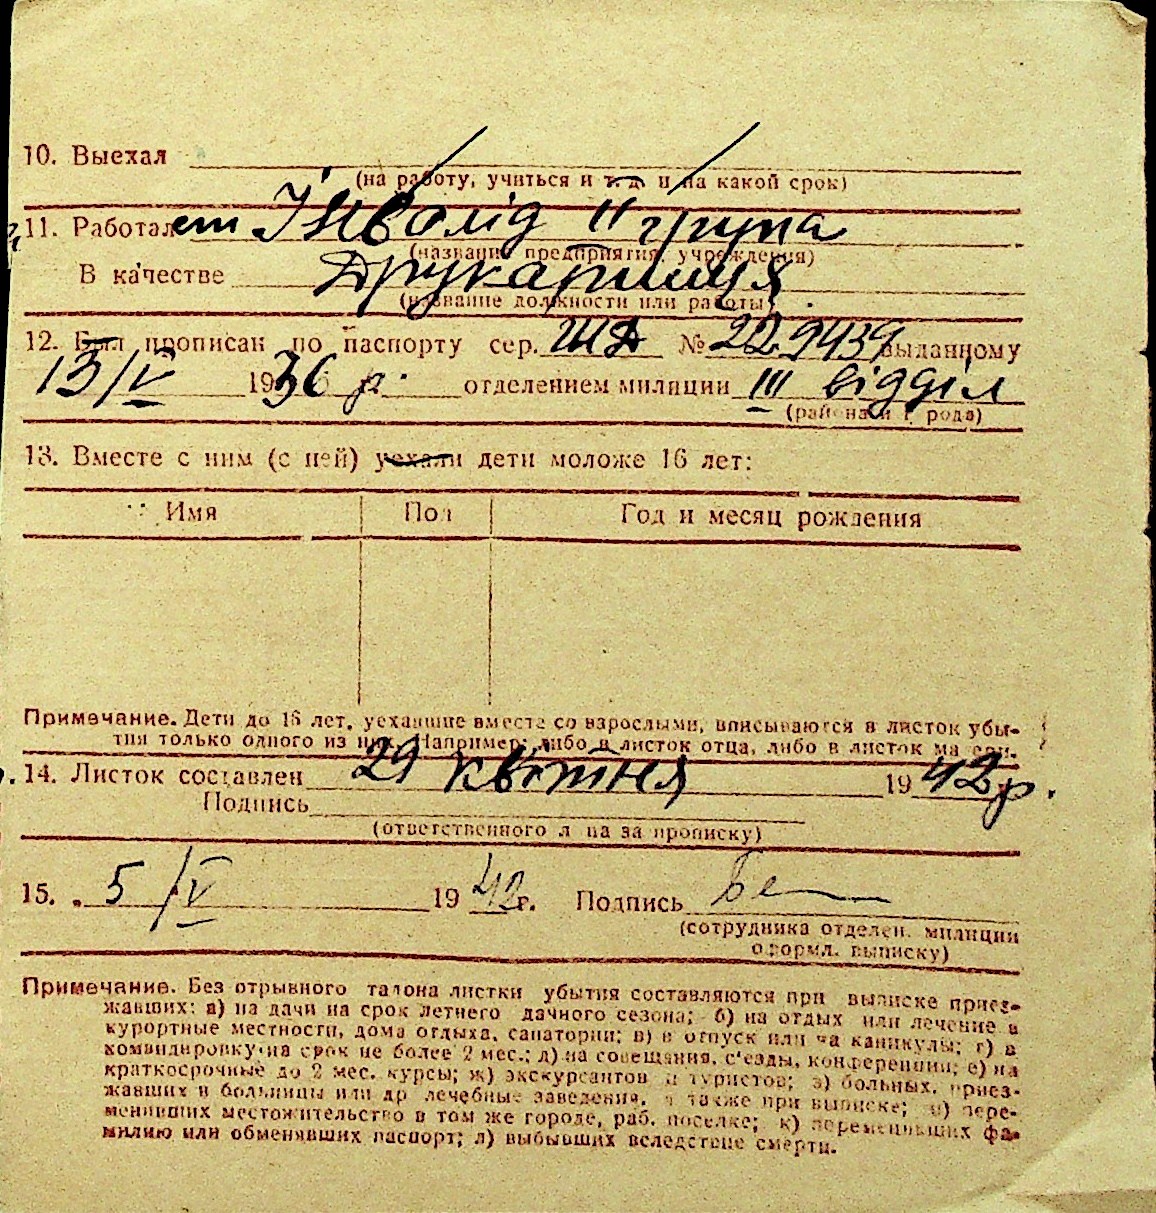 10. Выехал
(на работу, учиться и т. д. и на какой срок)
11. Работал Інвалід ІІ група
(название предприятия, учреждения)
В качестве Друкарниця
(название должности или работы)
12. Был прописан по паспорту сер. ШД № 229439 выданному
13/V 1936 р. отделением милиции III відділ
(района и города)
13. Вместе с ним (с ней) уехали дети моложе 16 лет:
Имя Пол Год и месяц рождения
Примечание. Дети до 16 лет, уехавшие вместе со взрослыми, вписываются в листок убы-
тия только одного из них. Например: либо в листок отца, либо в листок матери.
14. Листок составлен 29 квітня 1942 р.
Подпись
(ответственного лица за прописку)
15. 5/V 1942 г. Подпись
(сотрудника отделен. милиции
оформл. выписку)
Примечание. Без отрывного талона листки убытия составляются при выписке приез-
жавших: а) на дачи на срок летнего дачного сезона; б) на отдых или лечение в
курортные местности, дома отдыха, санатории; в) в отпуск или на каникулы; г) в
командировку на срок не более 2 мес.; д) на совещания, с'езды, конференции; е) на
краткосрочные до 2 мес. курсы; ж) экскурсантов и туристов; з) больных, приез-
жавших в больницы или др лечебные заведения, а также при выписке; и) пере-
менивших местожительство в том же городе, раб. поселке; к) переменивших фа-
милию или обменявших паспорт; л) выбывших вследствие смерти.